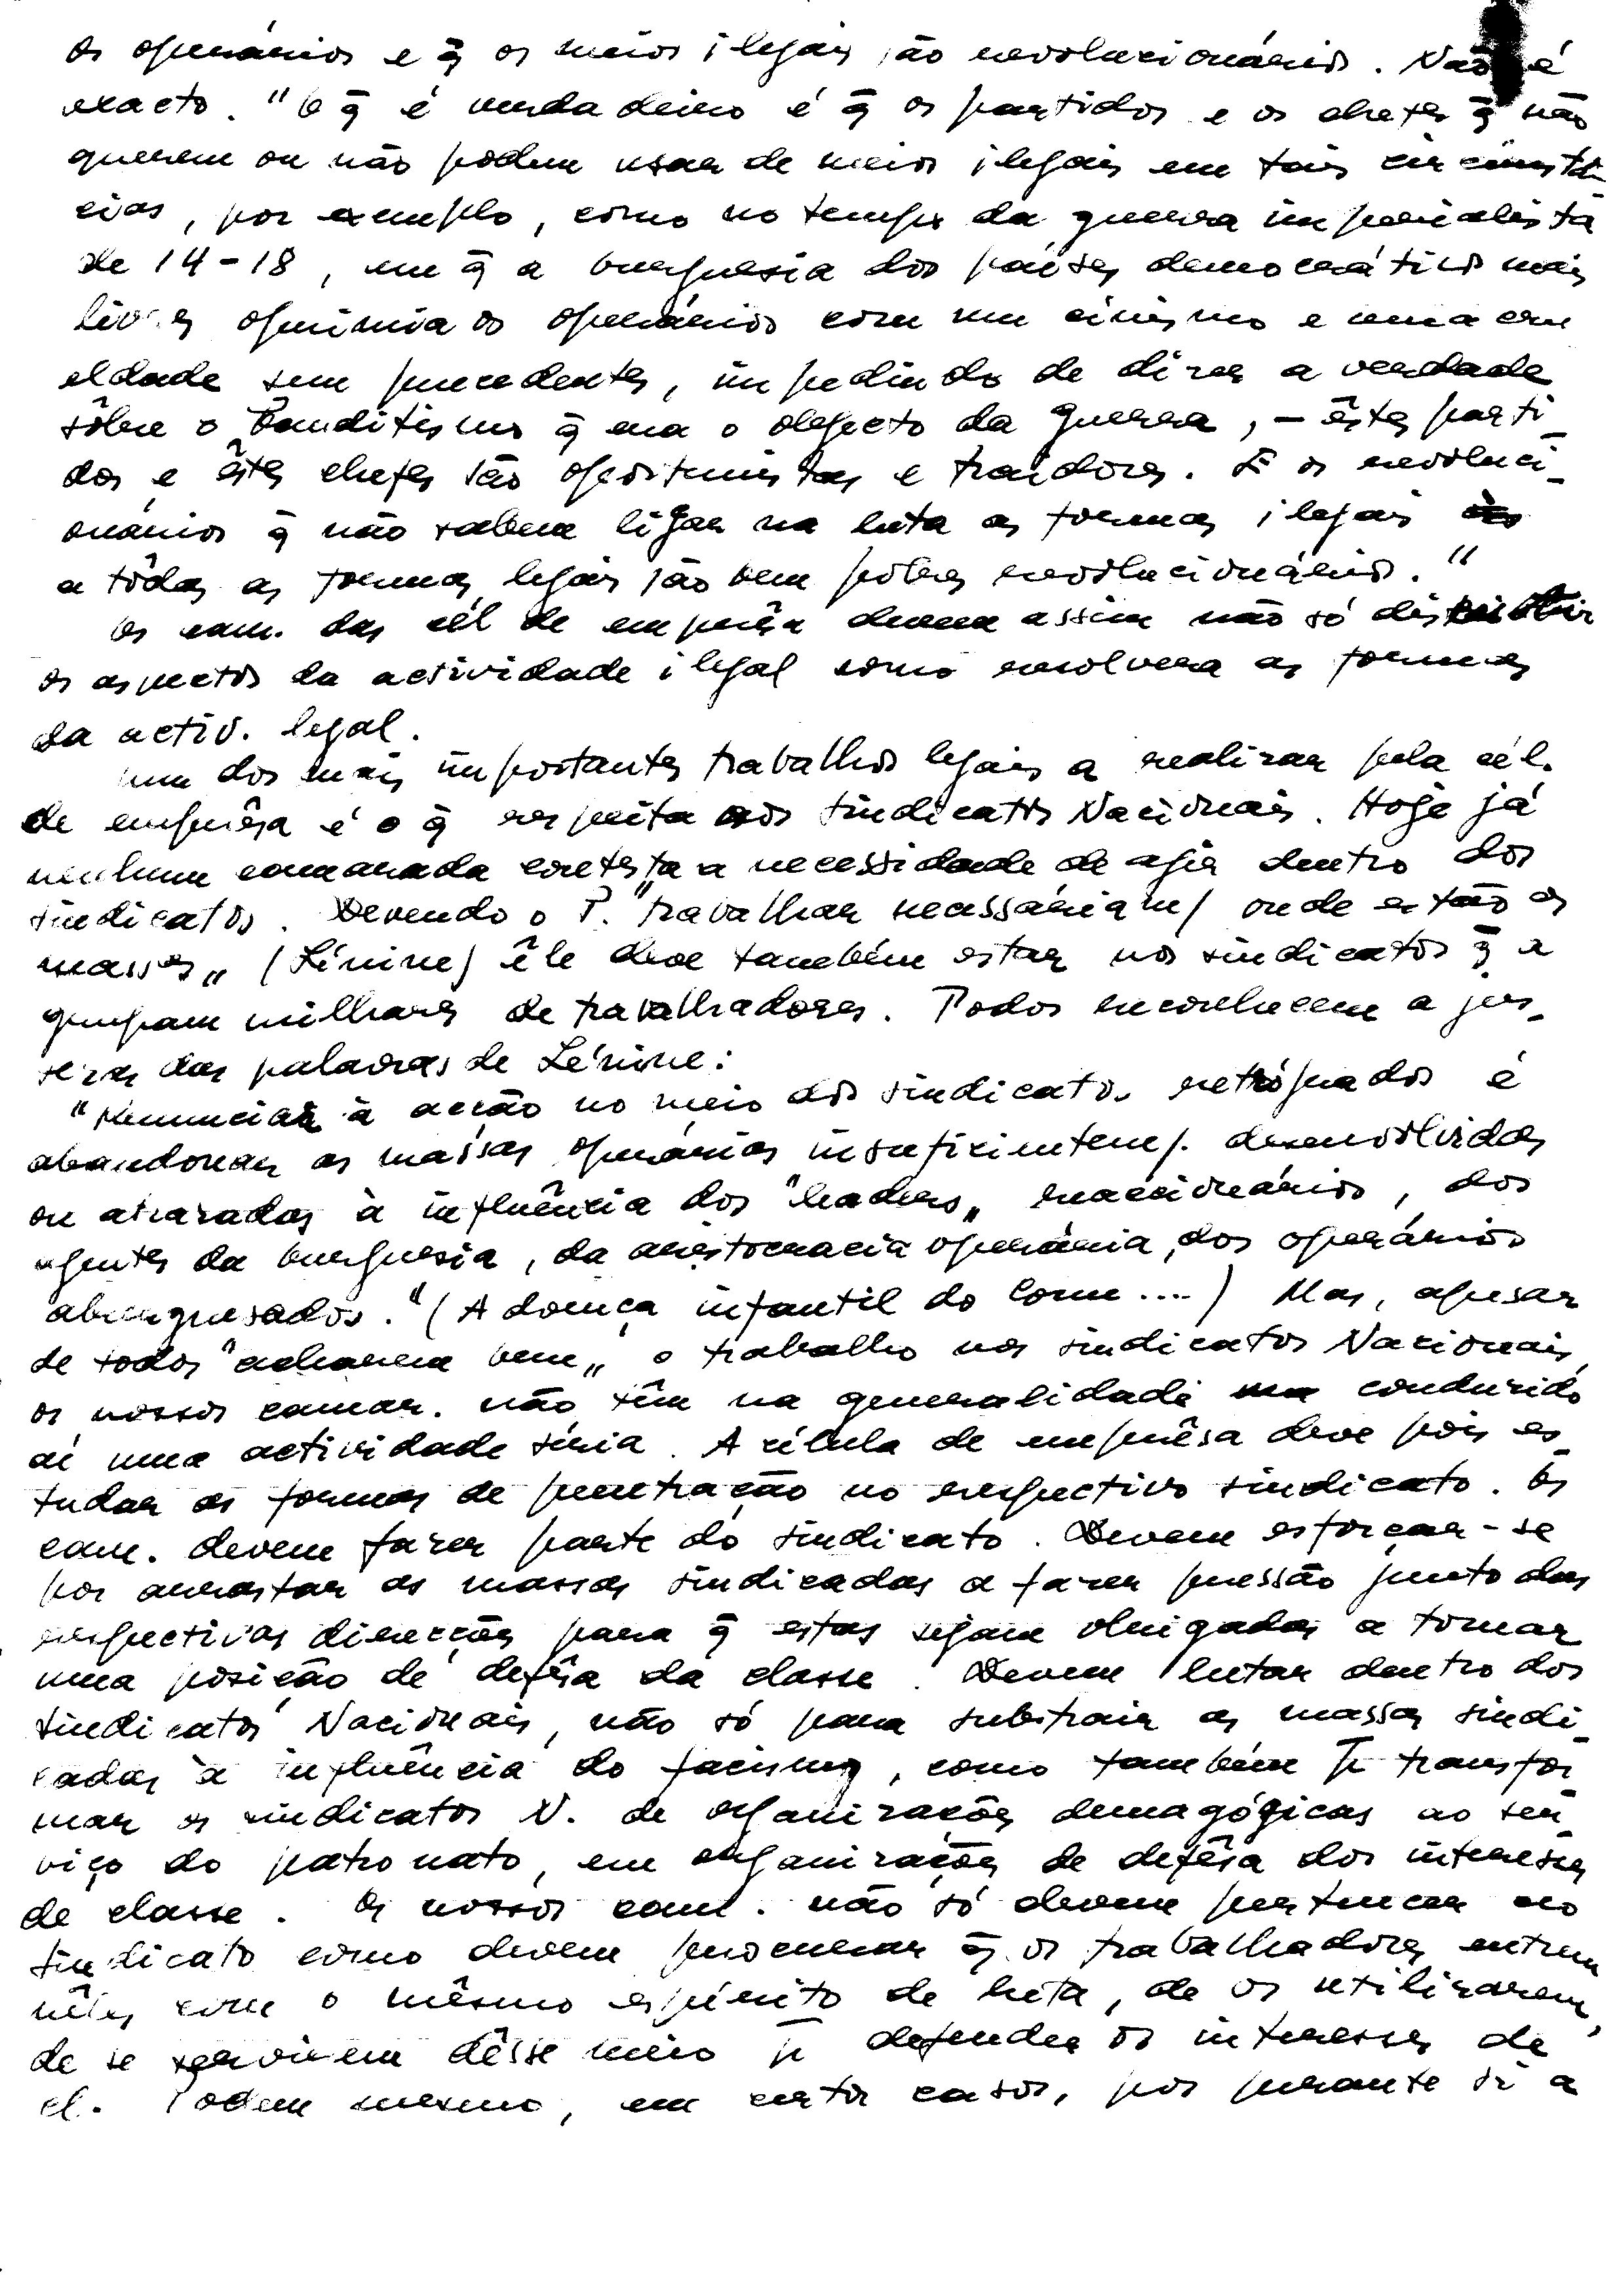 os operários e q̃ os meios ilegais são revolucionários. Não é
exacto. "O q̃ é verdadeiro é q̃ os partidos e os chefes q̃ não
querem ou não podem usar de meios ilegais em tais circunstân
cias, por exemplo, como no tempo da guerra imperialista
de 14-18, em q̃ a burguesia dos países democráticos mais
livres oprimia os operários com um cinismo e uma cru
eldade sem precedentes, impedindo de dizer a verdade
sôbre o banditismo q̃ era o objecto da guerra, - êstes parti_
dos e êstes chefes são oportunistas e traidores. E os revoluci_
onários q̃ não sabem ligar na luta as formas ilegais
a tôdas as formas legais são bem pobres revolucionários."
Os cam. das cél de emprêsa devem assim não só
os aspectos da actividade ilegal como resolverem as formas
da activ. legal.
Um dos mais importantes trabalhos legais a realizar pela cél.
de emprêsa é o q̃ respeita aos Sindicatos Nacionais. Hoje já
nenhum camarada contesta a necessidade de agir dentro dos
sindicatos. Devendo o P. "trabalhar necessàriam/ onde estão as
massas" (Lénine) êle deve também estar nos sindicatos q̃ a
grupam milhares de trabalhadores. Todos reconhecem a jus_
teza das palavras de Lénine:
"Renunciar à acção no meio dos sindicatos retrógrados é
abandonar as massas operárias insuficientem/. desenvolvidas
ou atrazadas à influência dos "leaders" reaccionários, dos
agentes da burguesia, da aristocracia operária, dos operários
aburguesados." (A doença infantil do Comu....) Mas, apesar
de todos "acharem bem" o trabalho nos sindicatos Nacionais,
os nossos camar. não têm na generalidade conduzido
aí uma actividade séria. A célula de emprêsa deve pois es_
tudar as formas de penetração no respectivo sindicato. Os
cam. devem fazer parte do sindicato. Devem esforçar-se
por arrastar as massas sindicadas a fazer pressão junto das
respectivas direcções para q̃ estas sejam obrigadas a tomar
uma posição de defêsa da classe. Devem lutar dentro dos
sindicatos Nacionais, não só para subtrair as massas sindi_
cadas à influência do facismo, como também p̄ transfor_
mar os sindicatos N. de organizações demagógicas ao ser_
viço do patronato, em organizações de defêsa dos interesses
de classe. Os nossos cam. não só devem pertencer ao
sindicato como devem procurar q̃ os trabalhadores entrem
nêles com o mêsmo espírito de luta, de os utilizarem,
de se servirem dêsse meio p̄ defender os interesses de
cl. Podem mesmo, em certos casos, pôr perante si a